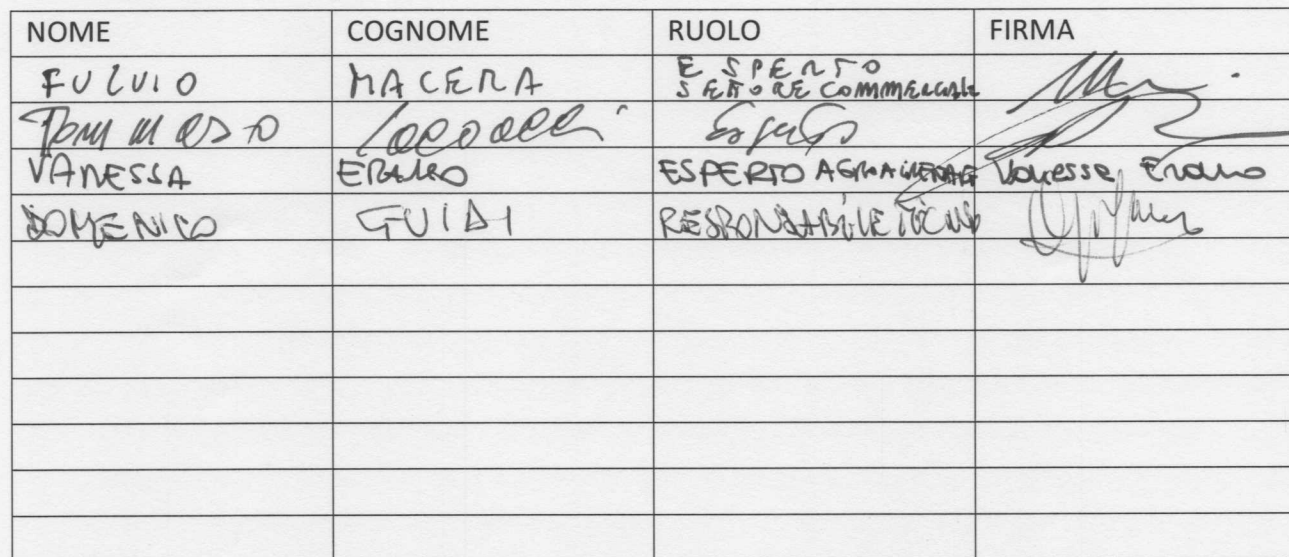 NOME COGNOME RUOLO FIRMA
FULVIO MACERA ESPERTO
SETTORE COMMERCIALE
Tommaso Esperto
VANESSA ERAMO ESPERTO AGROALIMENTARE Vanessa Eramo
DOMENICO GUIDI RESPONSABILE TECNICO